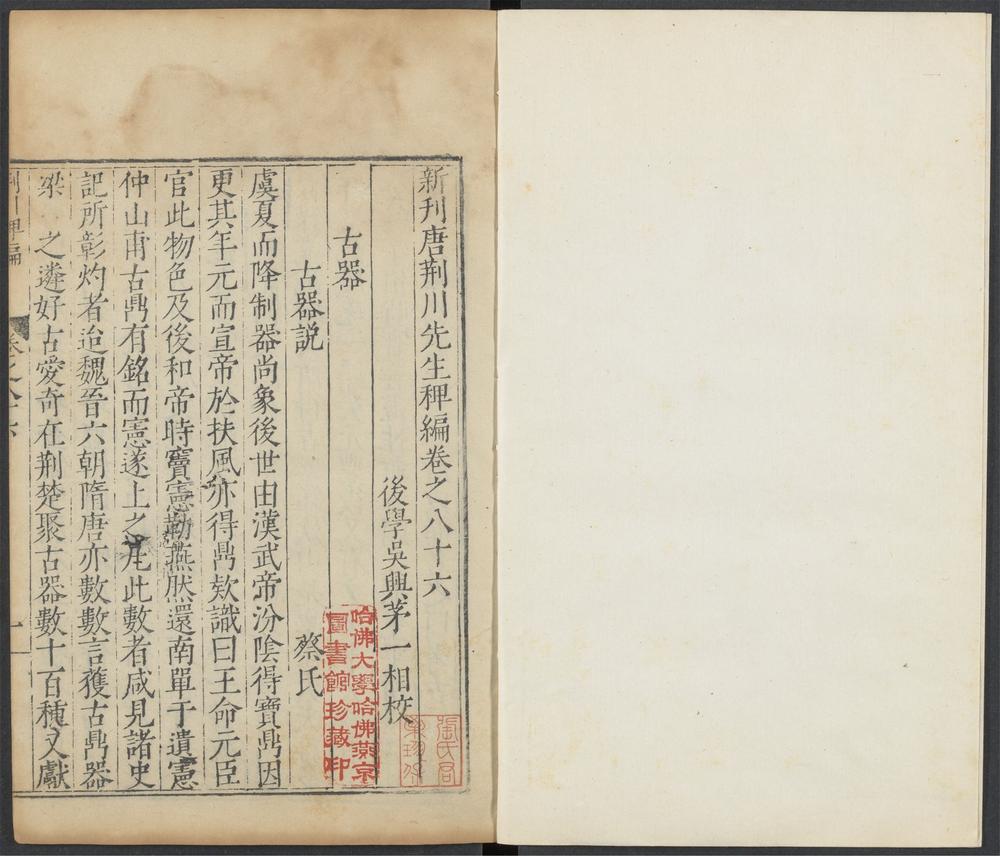 新刊唐荆川先生稗編卷之八十六
後學吳興茅一相校
古器
古器說 蔡氏
虞夏而降制器尚象後世由漢武帝汾陰得寶鼎因
更其年元而宣帝於扶風亦得鼎欵識曰王命元臣
官此物色及後和帝時竇憲勒燕然還南單于遺憲
仲山甫古鼎有銘而憲遂上之凡此數者咸見諸史
記所彰灼者迨魏晉六朝隋唐亦數數言獲古鼎器
梁 之遴好古愛奇在荆楚聚古器數十百種又獻
哈佛大學哈佛燕京
圖書館珍藏印